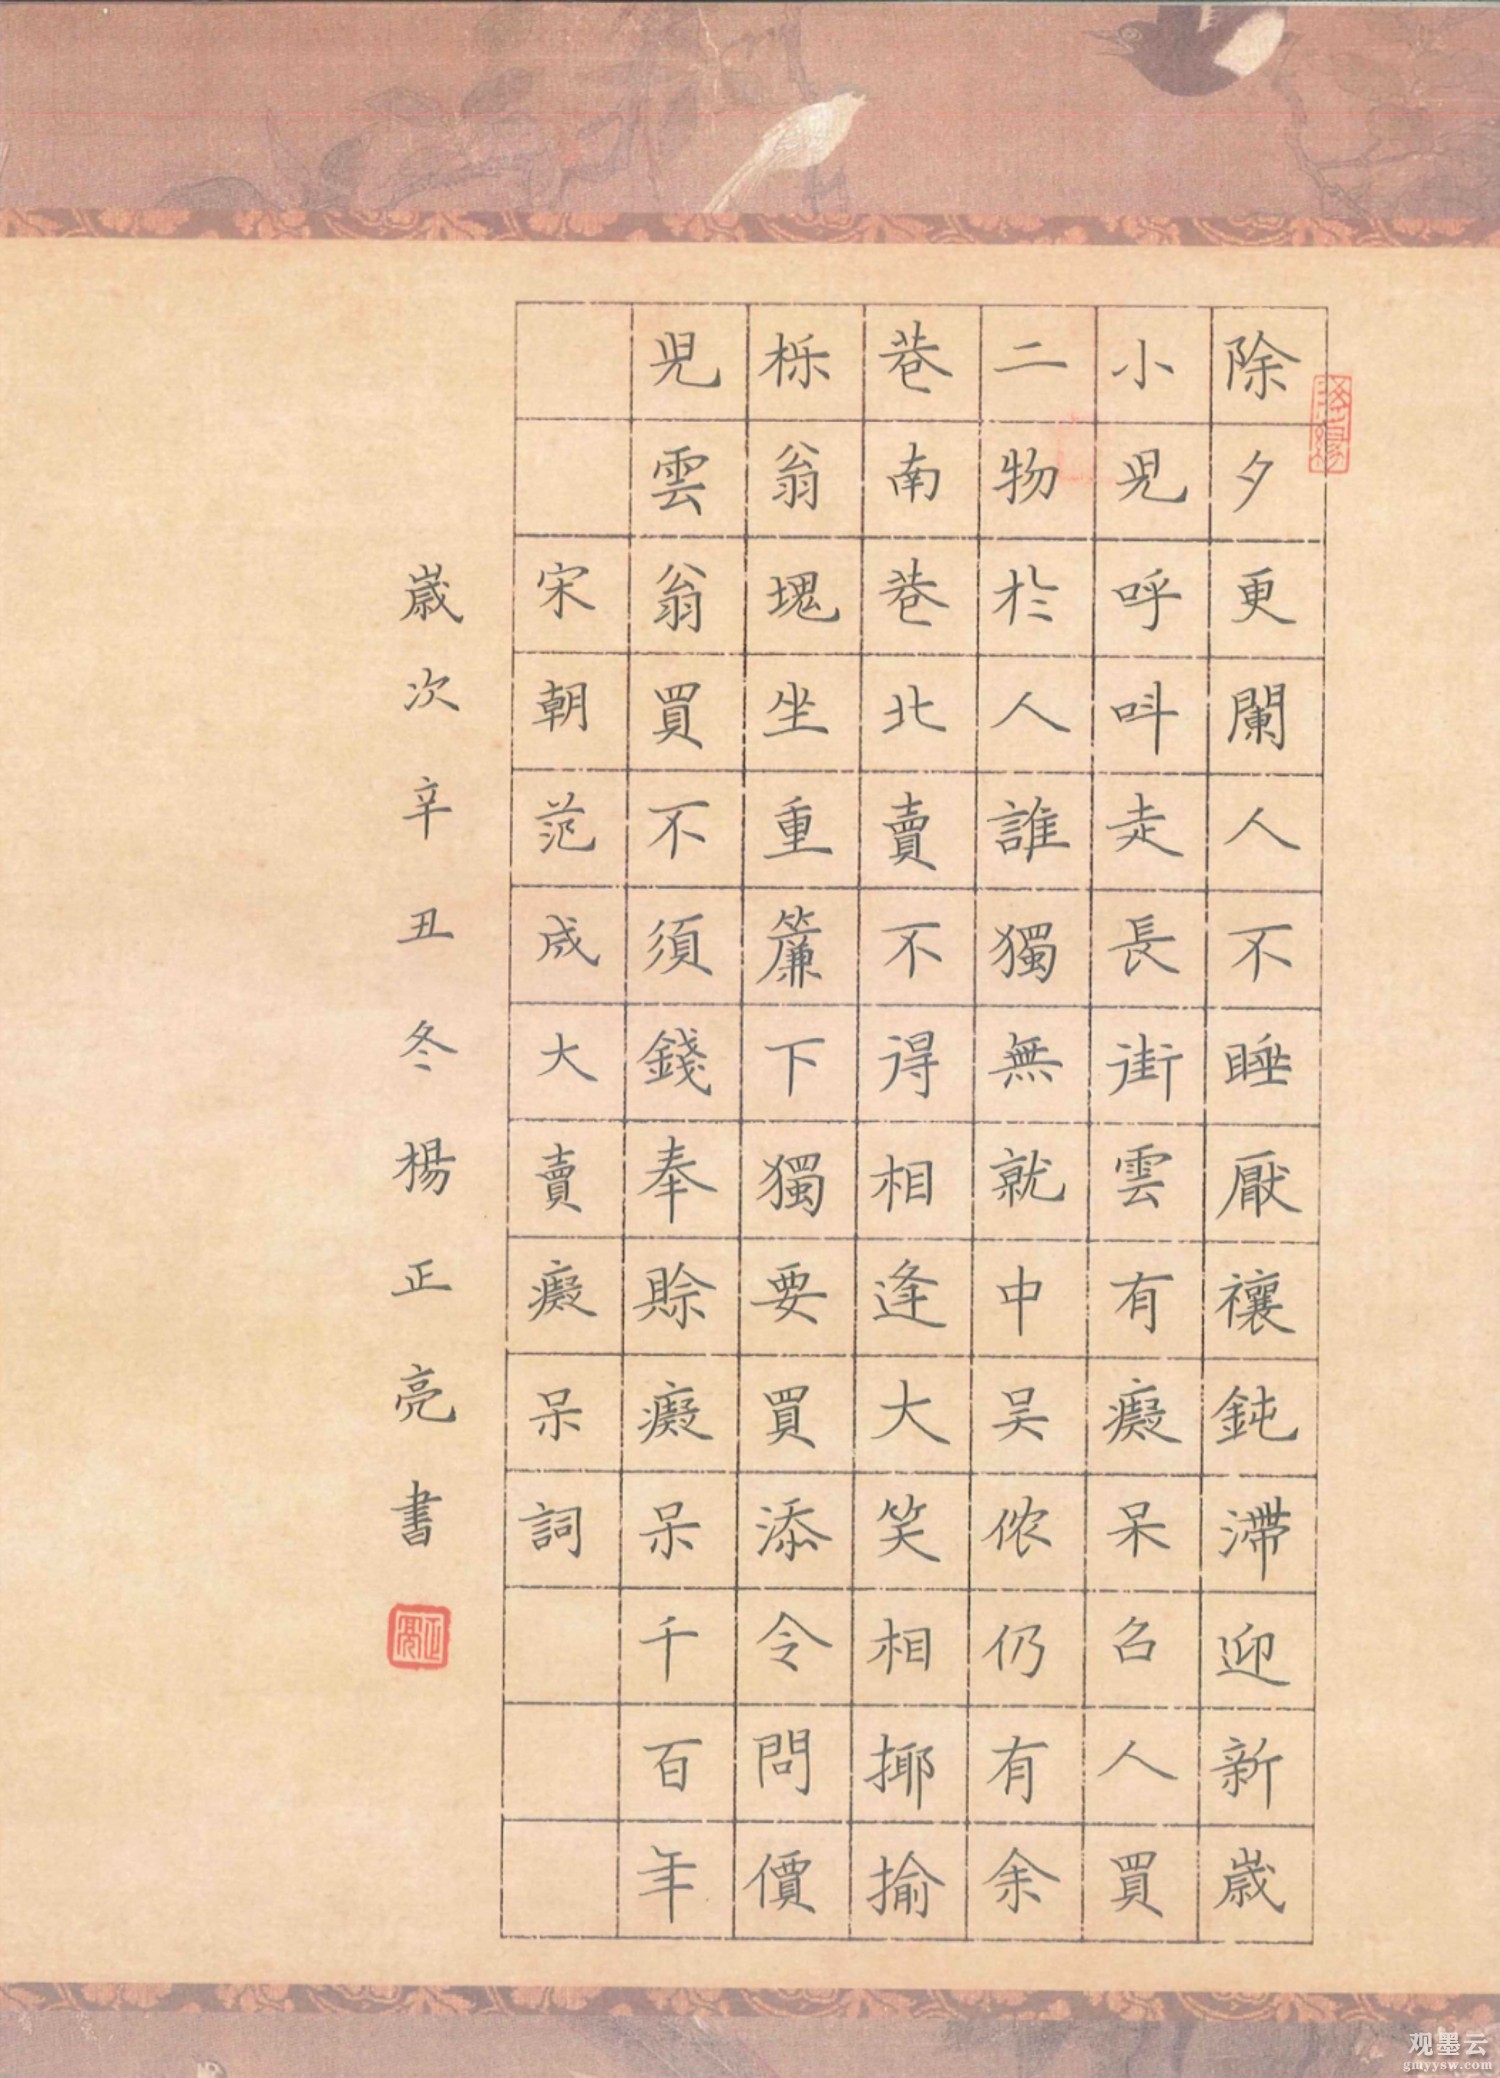 除夕更闌人不睡厭禳鈍滯迎新歲
小兒呼叫走長街雲有癡呆召人買
二物於人誰獨無就中吴侬仍有余
巷南巷北賣不得相逢大笑相揶揄
栎翁塊坐重簾下獨要買添令問價
兒雲翁買不須錢奉賒癡呆千百年
宋朝范成大賣癡呆詞
歲次辛丑冬楊正亮書
正亮
观墨云
gmyysw.com